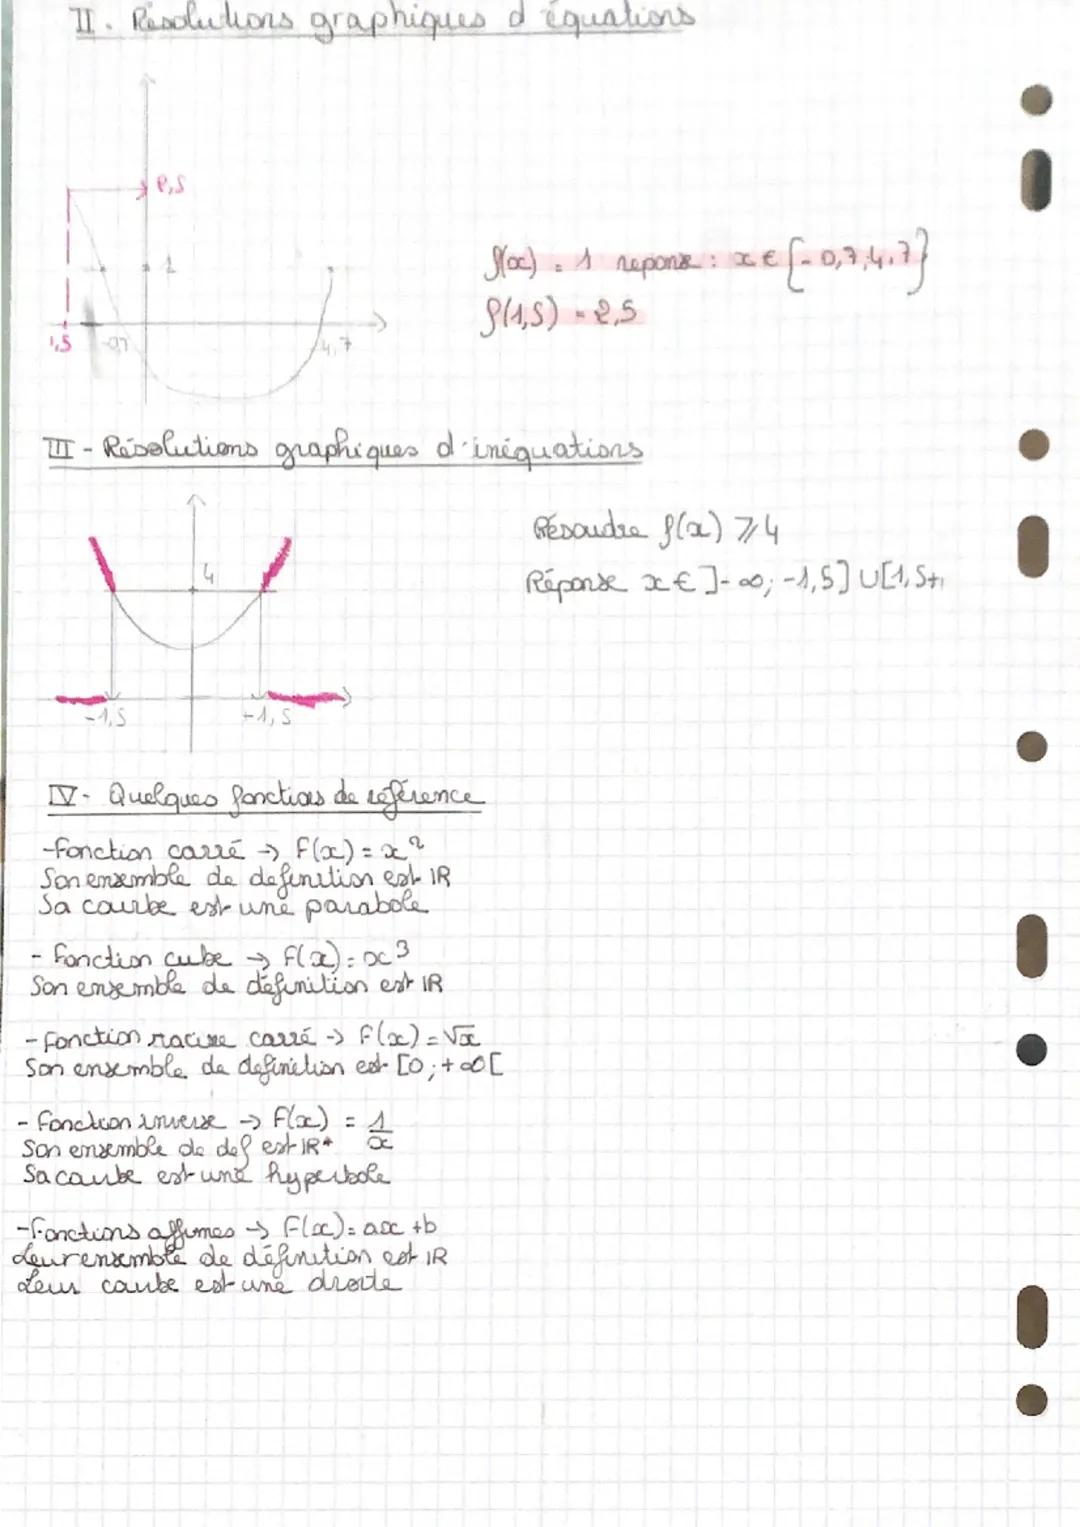 II. Résolutions graphiques d'équations
2,5
1
f(x) = 1 reponse : x ∈ {-0,7;4,7}
f(1,5) = 2,5
1,5 -0,7 4,7
III - Résolutions graphiques d'inéquations
Résoudre f(x) ⩾ 4
4
Réponse x ∈ ]-∞; -1,5] U [1,5+
-1,5 -1,5
IV - Quelques fonctions de référence
-Fonction carré → F(x) = x²
Son ensemble de definition est IR
Sa courbe est une parabole
- Fonction cube → F(x) = x³
Son ensemble de définition est IR
- Fonction racine carré → F(x) = √x
Son ensemble de definition est [0;+∞[
- Fonction inverse → F(x) = 1/x
Son ensemble de def est IR*
Sa courbe est une hyperbole
-Fonctions affines → F(x) = ax +b
Leur ensemble de définition est IR
Leur courbe est une droite